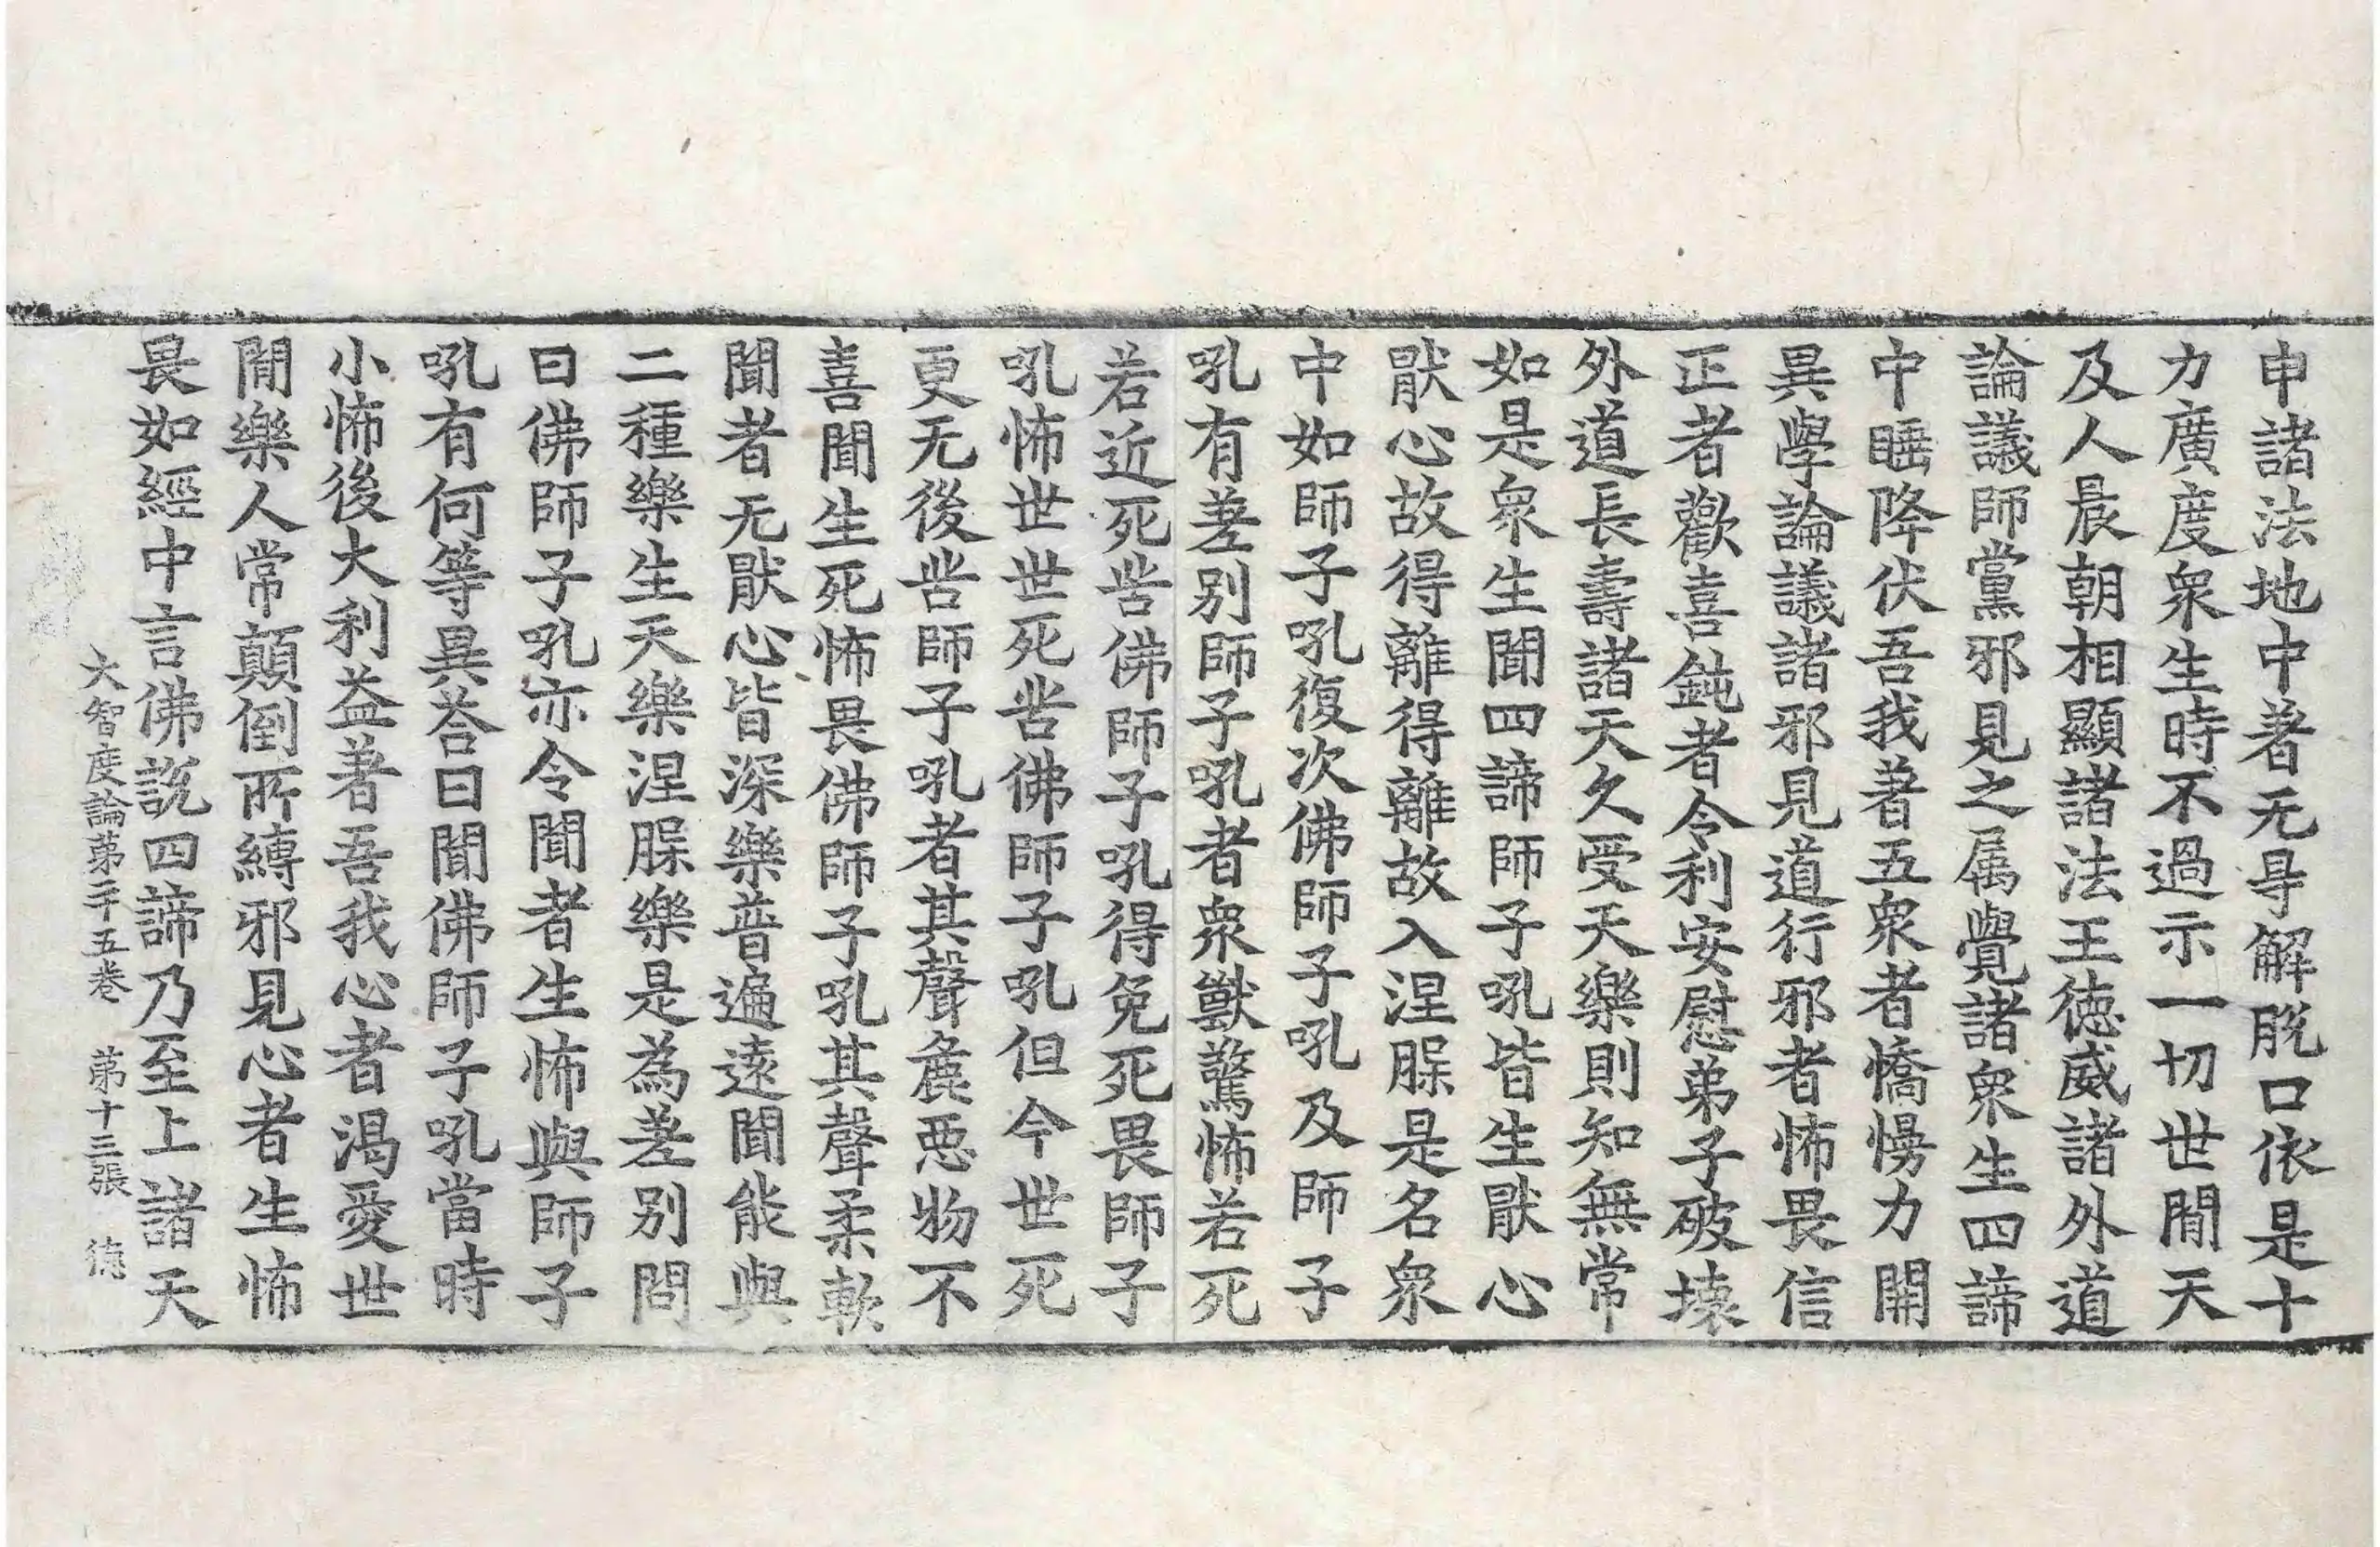 申諸法地中著无㝵解脫口依是十
力廣度衆生時不過示一切世閒天
及人晨朝相顯諸法王德威諸外道
論議師黨邪見之属覺諸衆生四諦
中睡降伏吾我著五衆者憍慢力開
異學論議諸邪見道行邪者怖畏信
正者歡喜鈍者令利安慰弟子破壞
外道長壽諸天久受天樂則知無常
如是衆生聞四諦師子吼皆生猒心
猒心故得離得離故入涅槃是名衆
中如師子吼復次佛師子吼及師子
吼有差别師子吼者衆獸驚怖若死
若近死苦佛師子吼得免死畏師子
吼怖世世死苦佛師子吼但今世死
更无後苦師子吼者其聲麁惡物不
喜聞生死怖畏佛師子吼其聲柔軟
聞者无猒心皆深樂普遍遠聞能與
二種樂生天樂涅槃樂是為差别問
曰佛師子吼亦令聞者生怖與師子
吼有何等異荅曰聞佛師子吼當時
小怖後大利益著吾我心者渴愛世
閒樂人常顛倒所縛邪見心者生怖
畏如經中言佛說四諦乃至上諸天
大智度論第二十五卷 第十三張 德